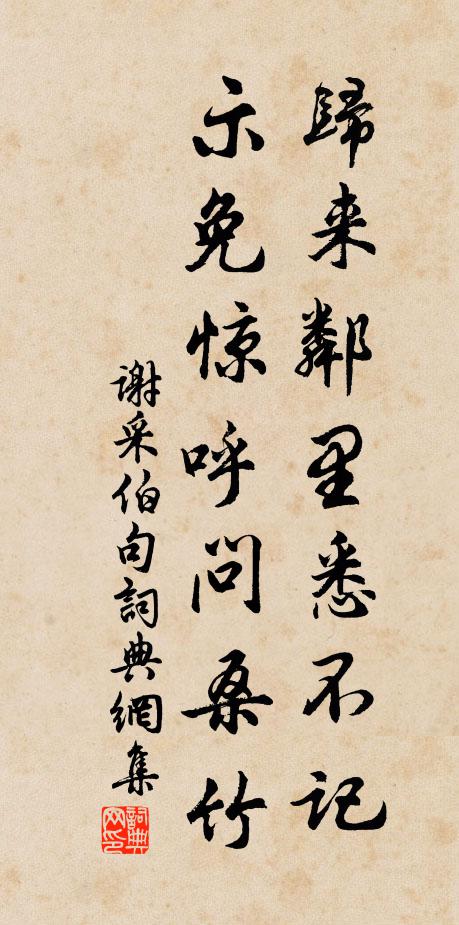 歸来鄰里悉不记
示免惊呼问桑竹
謝采伯句詞典網集
詞典网印